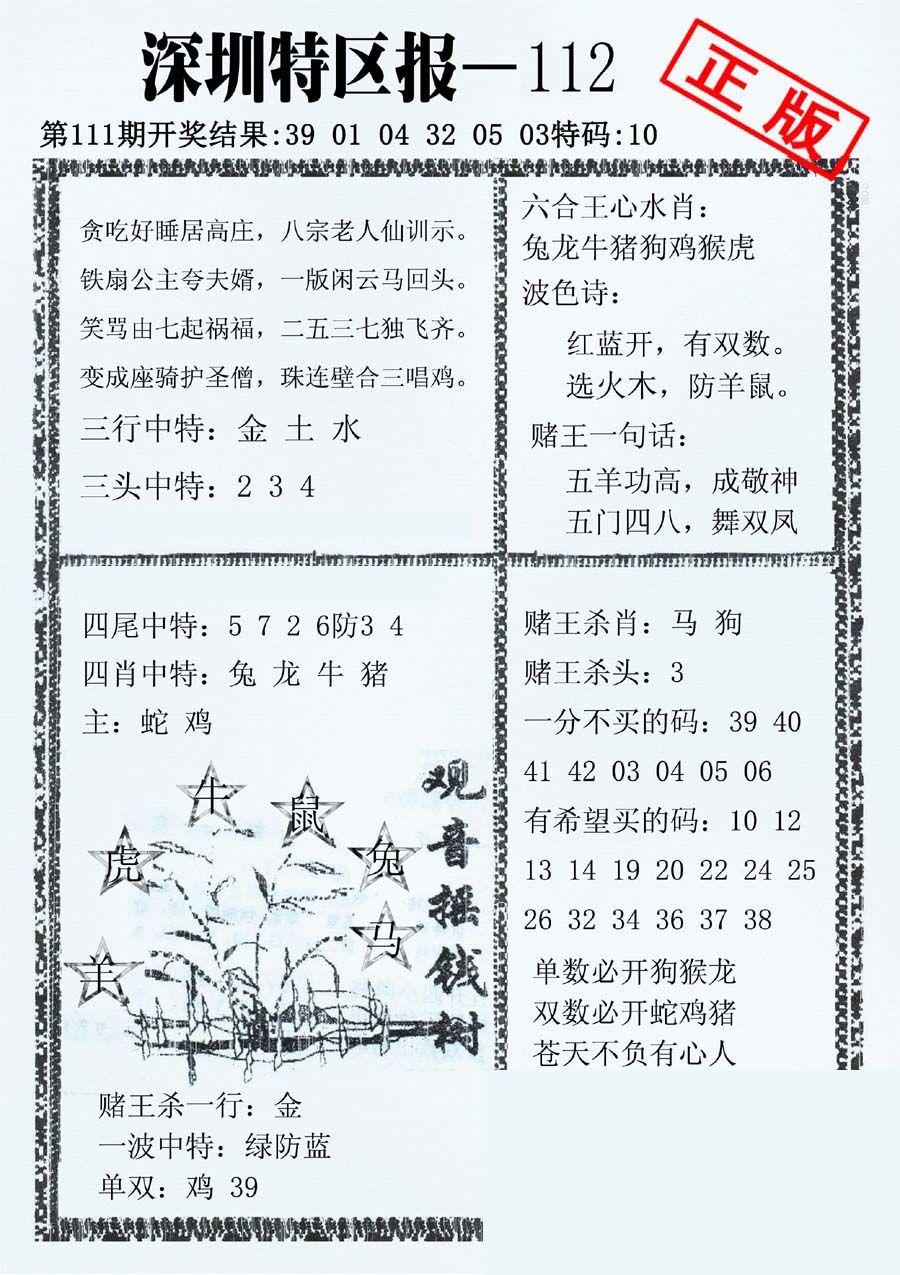 深圳特区报—112
正版
第111期开奖结果:39 01 04 32 05 03特码:10
贪吃好睡居高庄，八宗老人仙训示。
铁扇公主夸夫婿，一版闲云马回头。
笑骂由七起祸福，二五三七独飞齐。
变成座骑护圣僧，珠连壁合三唱鸡。
三行中特：金 土 水
三头中特：2 3 4
六合王心水肖：
兔龙牛猪狗鸡猴虎
波色诗：
红蓝开，有双数。
选火木，防羊鼠。
赌王一句话：
五羊功高，成敬神
五门四八，舞双凤
四尾中特：5 7 2 6防3 4
四肖中特：兔 龙 牛 猪
主：蛇 鸡
牛
鼠
虎
兔
马
羊
观音摇钱树
赌王杀一行：金
一波中特：绿防蓝
单双：鸡 39
赌王杀肖：马 狗
赌王杀头：3
一分不买的码：39 40
41 42 03 04 05 06
有希望买的码：10 12
13 14 19 20 22 24 25
26 32 34 36 37 38
单数必开狗猴龙
双数必开蛇鸡猪
苍天不负有心人